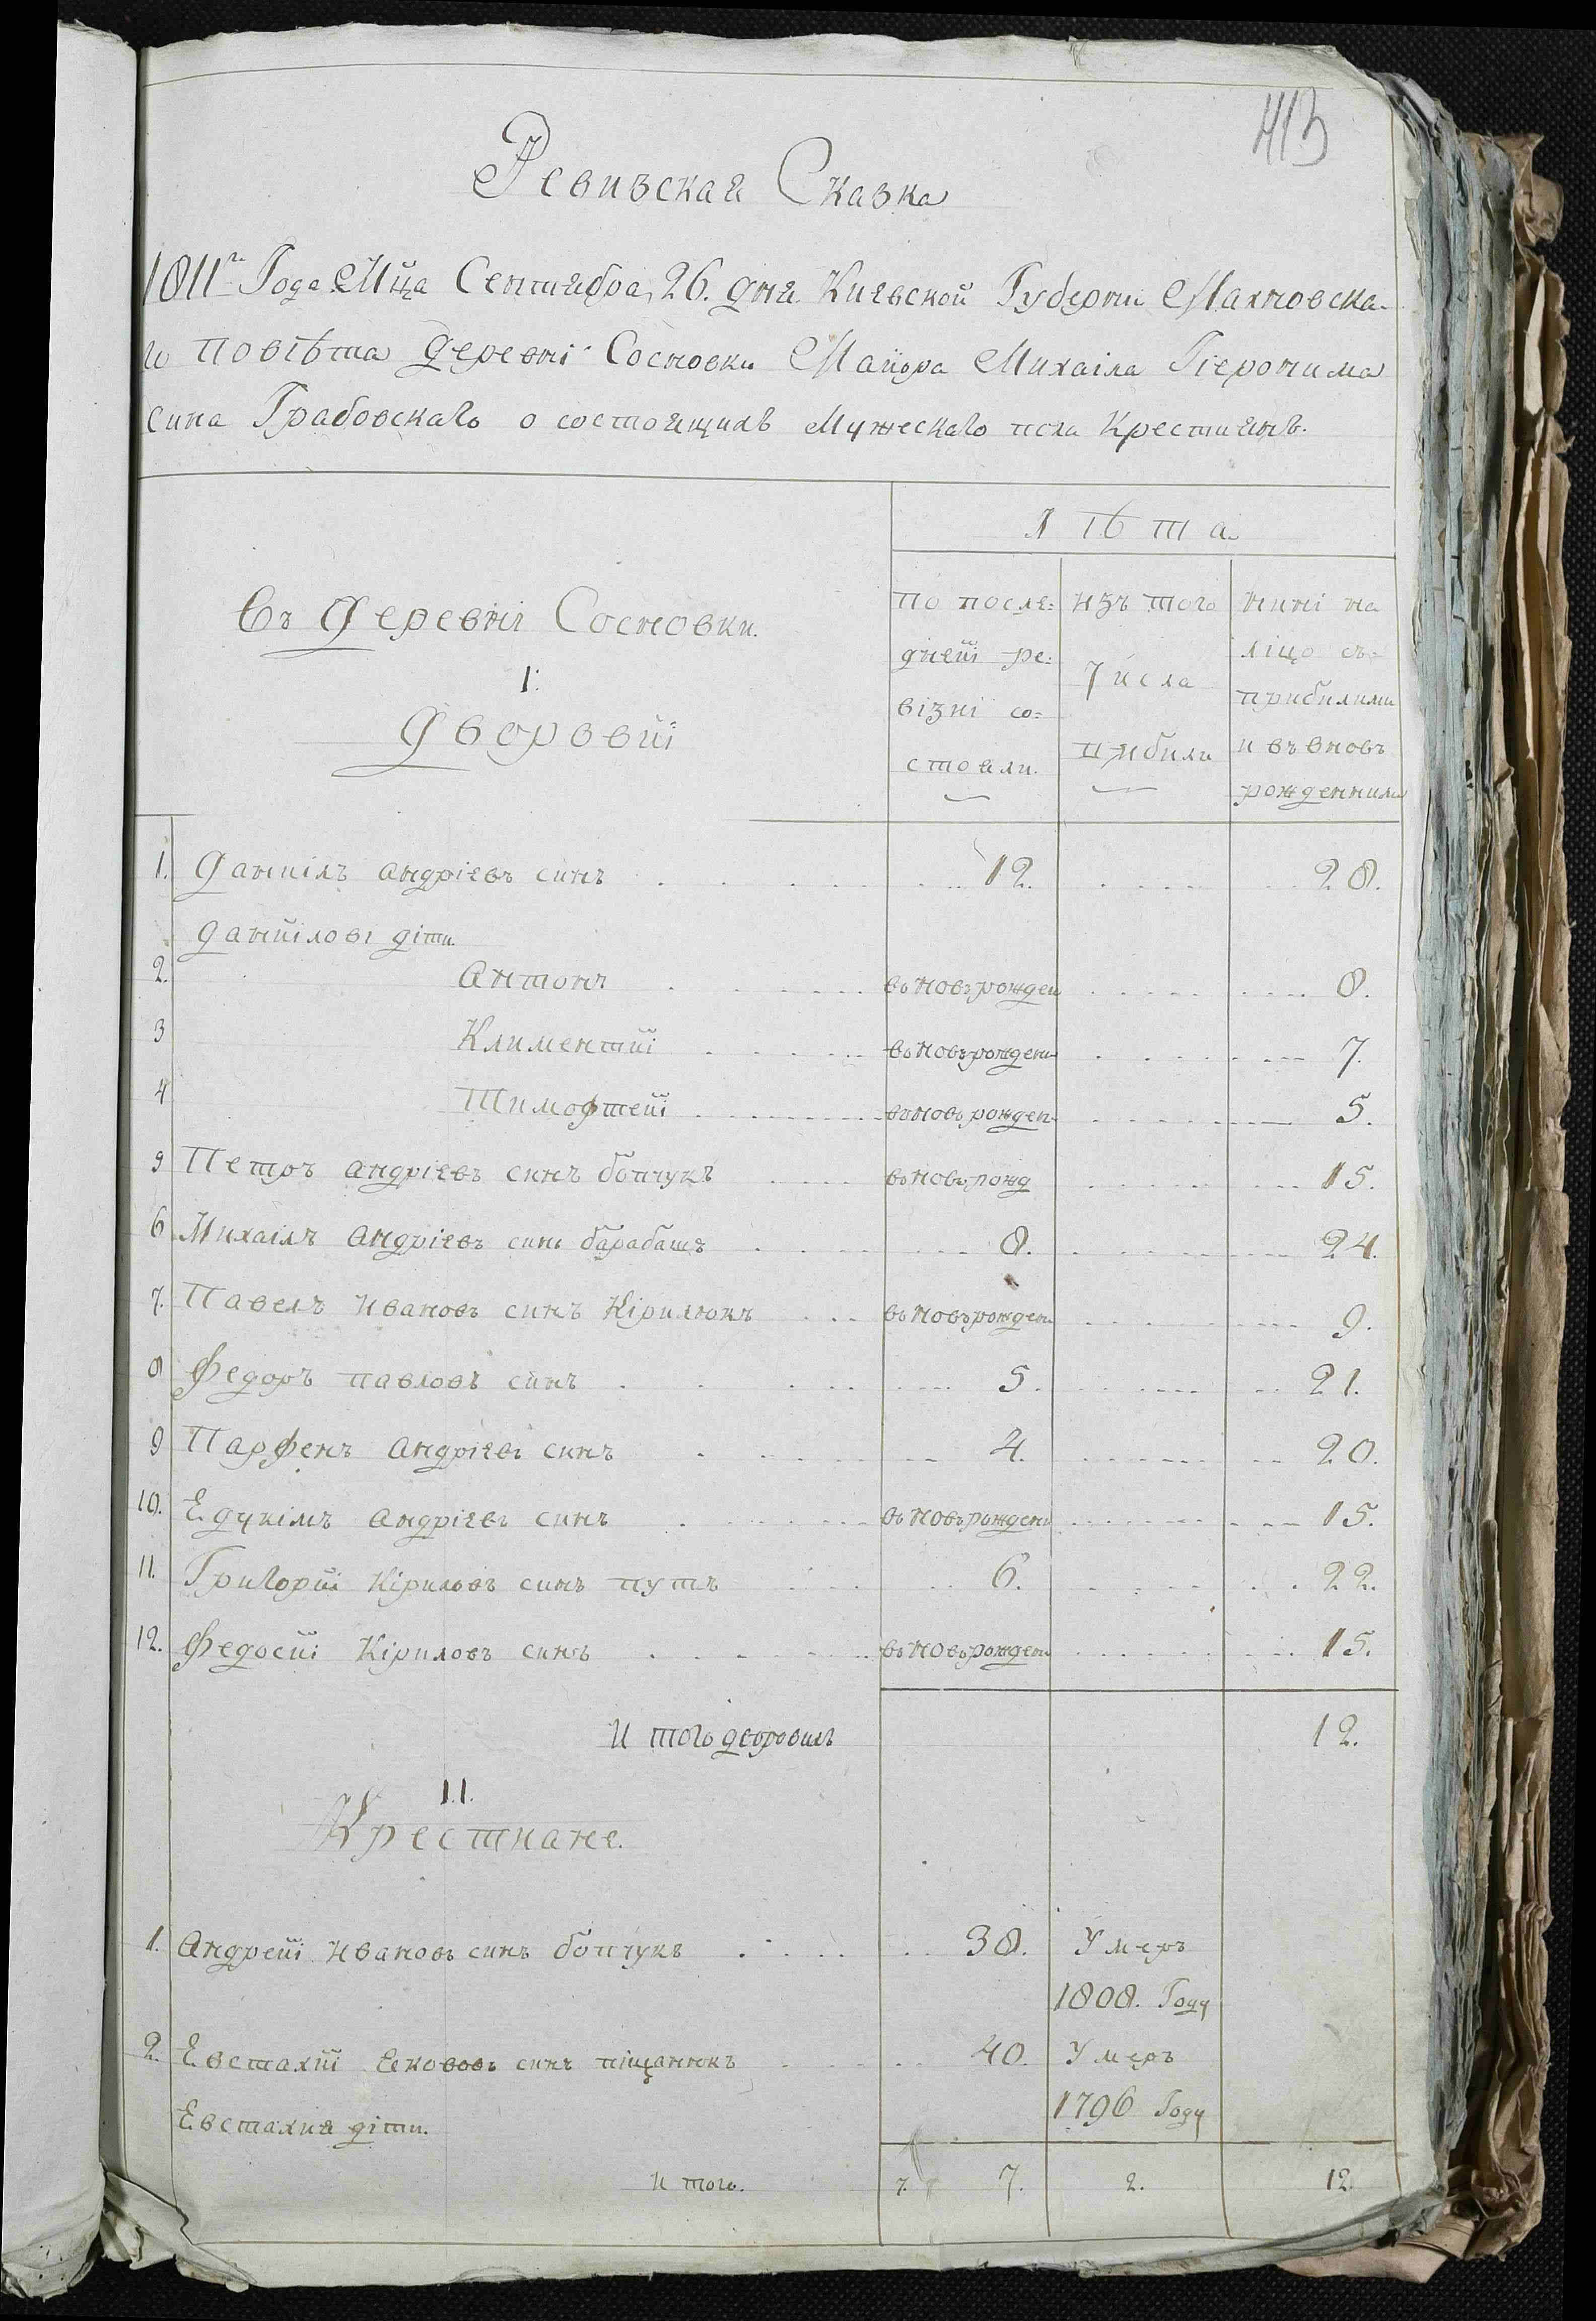 413
Ревизская Сказка
1811го Года Мца Сентября 26. дня Киевской Губерни Махновска-
го повѣта деревні Сосновки Маиора Михаіла Гіеронима
сина Грабовскаго о состоящихъ Мужескаго пола Крестиянъ.
Лѣта.
Въ деревні Сосновки.
I.
Дворовиі
по после=
днеиі ре=
візиі со=
стояли.
изъ того
числа
вибили
нині на
ліцо съ=
прибилими
и въ вновъ
рожденними
1. Даниілъ андріевъ синъ 12. 28.
даниілові діти
2. Антонъ въ новъ рожден 8.
3 Климентиі въ новъ рожден 7.
4 Тимофтеиі въ новъ рожден 5.
5 Петръ андріевъ синъ бопчукъ въ новъ рожд 15.
6 Михаілъ андріевъ синъ барабашъ 8. 24.
7. Павелъ ивановъ синъ Кірилюкъ въ новъ рожден 9.
8 Федоръ павловъ синъ 5. 21.
9 Парфенъ андріевъ синъ 4. 20.
10. Едукімъ андріевъ синъ въ новъ рожден 15.
11. Григориі Кіриловъ синъ путъ 6. 22.
12. Федосиі Кіриловъ синъ въ новъ рожден 15.
И того дворовихъ 12.
II.
Крестиане.
1. Андреиі ивановъ синъ бопчукъ 38. Умеръ
1808. Году
2. Евстахиі Якововъ синъ піщанюкъ 40. Умеръ
1796 Году
Евстахия діти.
И того. 7. 7. 2. 12.